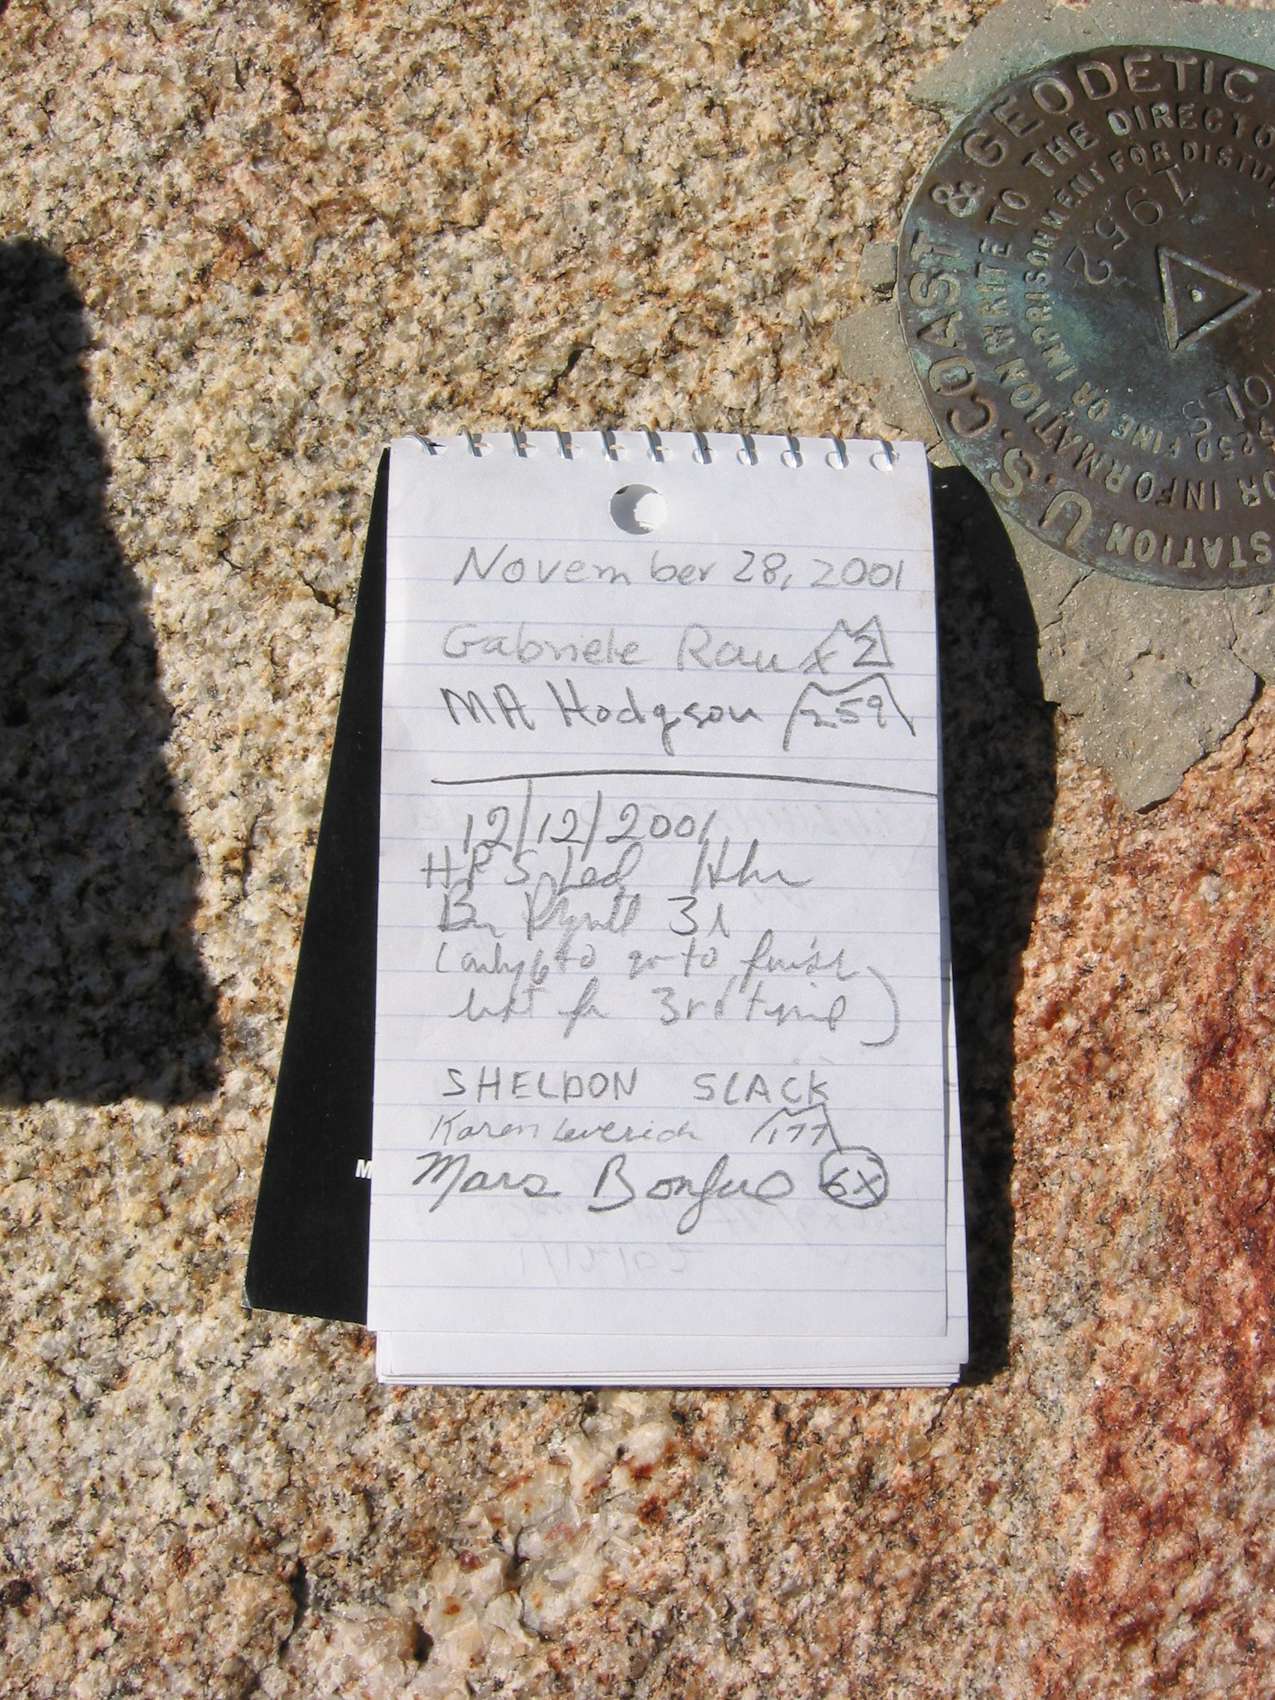 November 28, 2001
Gabriele Rau x 2
MA Hodgson 259
12/12/2001
HPS Led
3
(only 6 to go to finish
list for 3rd time)
SHELDON SLACK
Karen Leverich 177
Mars Bonfire 6X
M
U.S. COAST & GEODETIC
FOR INFORMATION WRITE TO THE DIRECTO
$250 FINE OR IMPRISONMENT FOR DISTU
STATION
1952